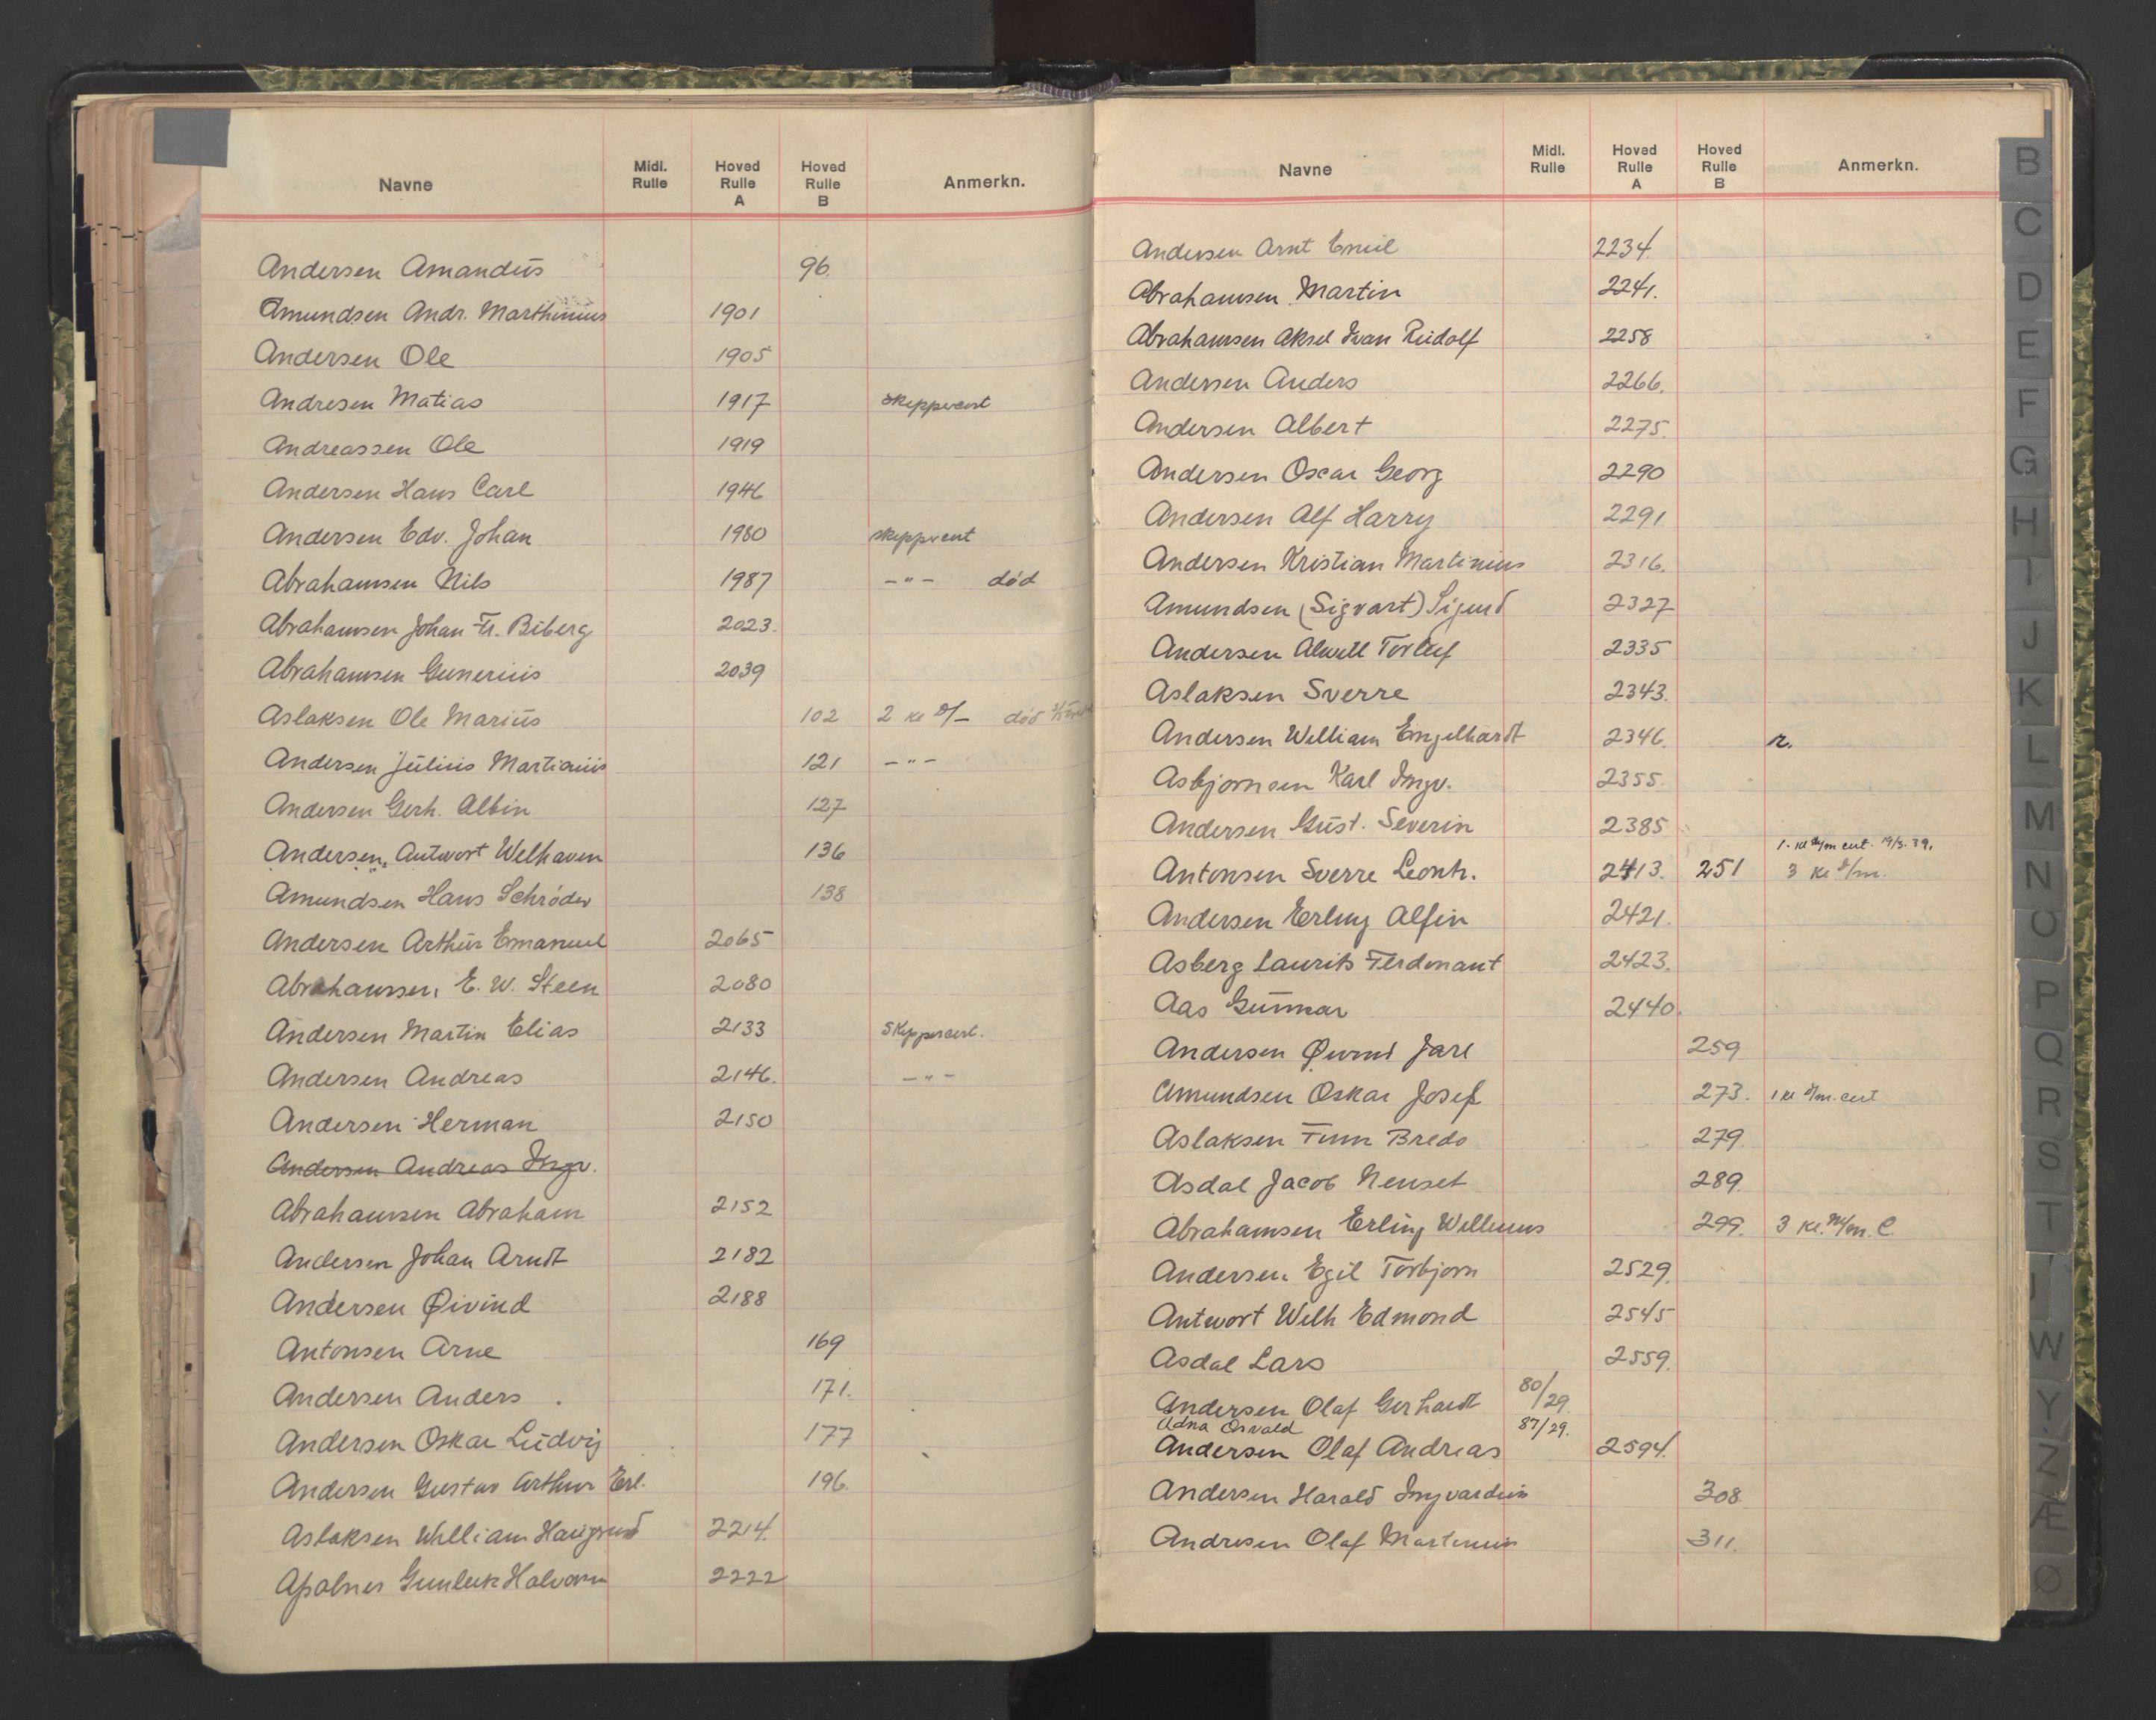 Navne Midl. Rulle Hoved Rulle A Hoved Rulle B Anmerkn.
Andersen Amandus 96.
Amundsen Andr. Marthinius 1901
Andersen Ole 1905
Andresen Matias 1917 skippercert
Andreassen Ole 1919
Andersen Hans Carl 1946
Andersen Edv. Johan 1980 skippercert
Abrahamsen Nils 1987 –"– död
Abrahamsen Johan Fr. Biberg 2023.
Abrahamsen Gunerius 2039
Aslaksen Ole Marius 102 2 kl död
Andersen Julius Martinius 121 –"–
Andersen Gerh. Albin 127
Andersen, Antwort Welhaven 136
Amundsen Hans Schröder 138
Andersen Arthur Emanuel 2065
Abrahamsen, E. W. Steen 2080
Andersen Martin Elias 2133 Skippercert.
Andersen Andreas 2146. –"–
Andersen Herman 2150
Andersen Andreas Ingv.
Abrahamsen Abraham 2152
Andersen Johan Arndt 2182
Andersen Øivind 2188
Antonsen Arne 169
Andersen Anders 171.
Andersen Oskar Ludvig 177
Andersen Gustav Arthur Erl. 196.
Aslaksen William Haugsund 2214.
Gunleik 2222
Navne Midl. Rulle Hoved Rulle A Hoved Rulle B Anmerkn.
Andersen Arnt Emil 2234.
Abrahamsen Martin 2241.
Abrahamsen Aksel Ivan Rudolf 2258
Andersen Anders 2266.
Andersen Albert 2275.
Andersen Oscar Georg 2290
Andersen Alf Harry 2291
Andersen Kristian Martinius 2316.
Amundsen (Sigvart) Sigurd 2327
Andersen Torleif 2335
Aslaksen Sverre 2343.
Andersen William Engelhardt 2346. r.
Asbjørnsen Karl Ingv. 2355.
Andersen Gust. Severin 2385
1. kl m cert. 19/3.39.
Antonsen Sverre Leonh. 2413. 251 3 kl s/m.
Andersen Erling Alfin 2421.
Asberg Laurits Ferdinant 2423.
Aas Gunnar 2440.
Andersen Øivind Jarl 259
Amundsen Oskar Josef 273. 1 kl s/m. cert
Aslaksen Finn Bredo 279.
Asdal Jacob Neuset 289.
Abrahamsen Erling Willums 299. 3 kl. m. C.
Andersen Egil Torbjørn 2529.
Antwort Welh Edmond 2545
Asdal Lars 2559.
Andersen Olaf Gerhardt 80/29.
Adna Osvald 87/29.
Andersen Olaf Andreas 2594.
Andersen Harald Ingvardius 308.
Andresen Olaf Martinius 311.
B
C
D
E
F
G
H
I
J
K
L
M
N
O
P
Q
R
S
T
U
W
Y
Z
Æ
Ø